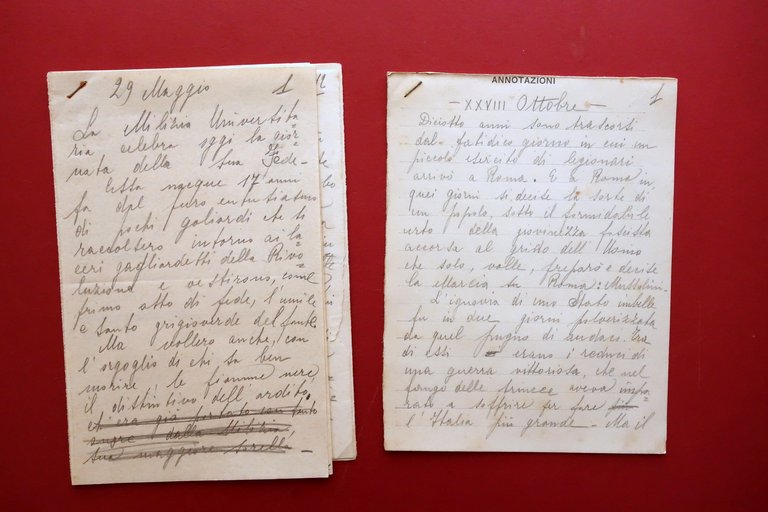 29 Maggio 1
La Milizia Universita=
ria celebra oggi la gior=
nata della sua Fede-
Essa nacque 17 anni
fa dal puro entusiasmo
di pochi goliardi che si
raccolsero intorno ai la=
ceri gagliardetti della Rivo=
luzione e vestirono, come
primo atto di fede, l'umile
e santo grigioverde del fante.
Ma vollero anche, con
l'orgoglio di chi sa ben
morire, le fiamme nere,
il distintivo dell'ardito,
che era già portato con tanto
sangue dalla Milizia,
sua maggiore sorella -
ANNOTAZIONI
- XXVIII Ottobre - 1
Diciotto anni sono trascorsi
dal fatidico giorno in cui un
piccolo esercito di legionari
arrivò a Roma. E a Roma in
quei giorni si decise la sorte di
un popolo, sotto il formidabile
urto della giovinezza fascista
accorsa al grido dell'Uomo
che solo, volle, preparò e decise
la Marcia su Roma: Mussolini-
L'ignavia di uno Stato imbelle
fu in due giorni polverizzata
da quel pugno di audaci. Tra
di essi erano i reduci di
una guerra vittoriosa, che nel
fango delle trincee aveva impa=
rato a soffrire per fare
l'Italia più grande - Ma il